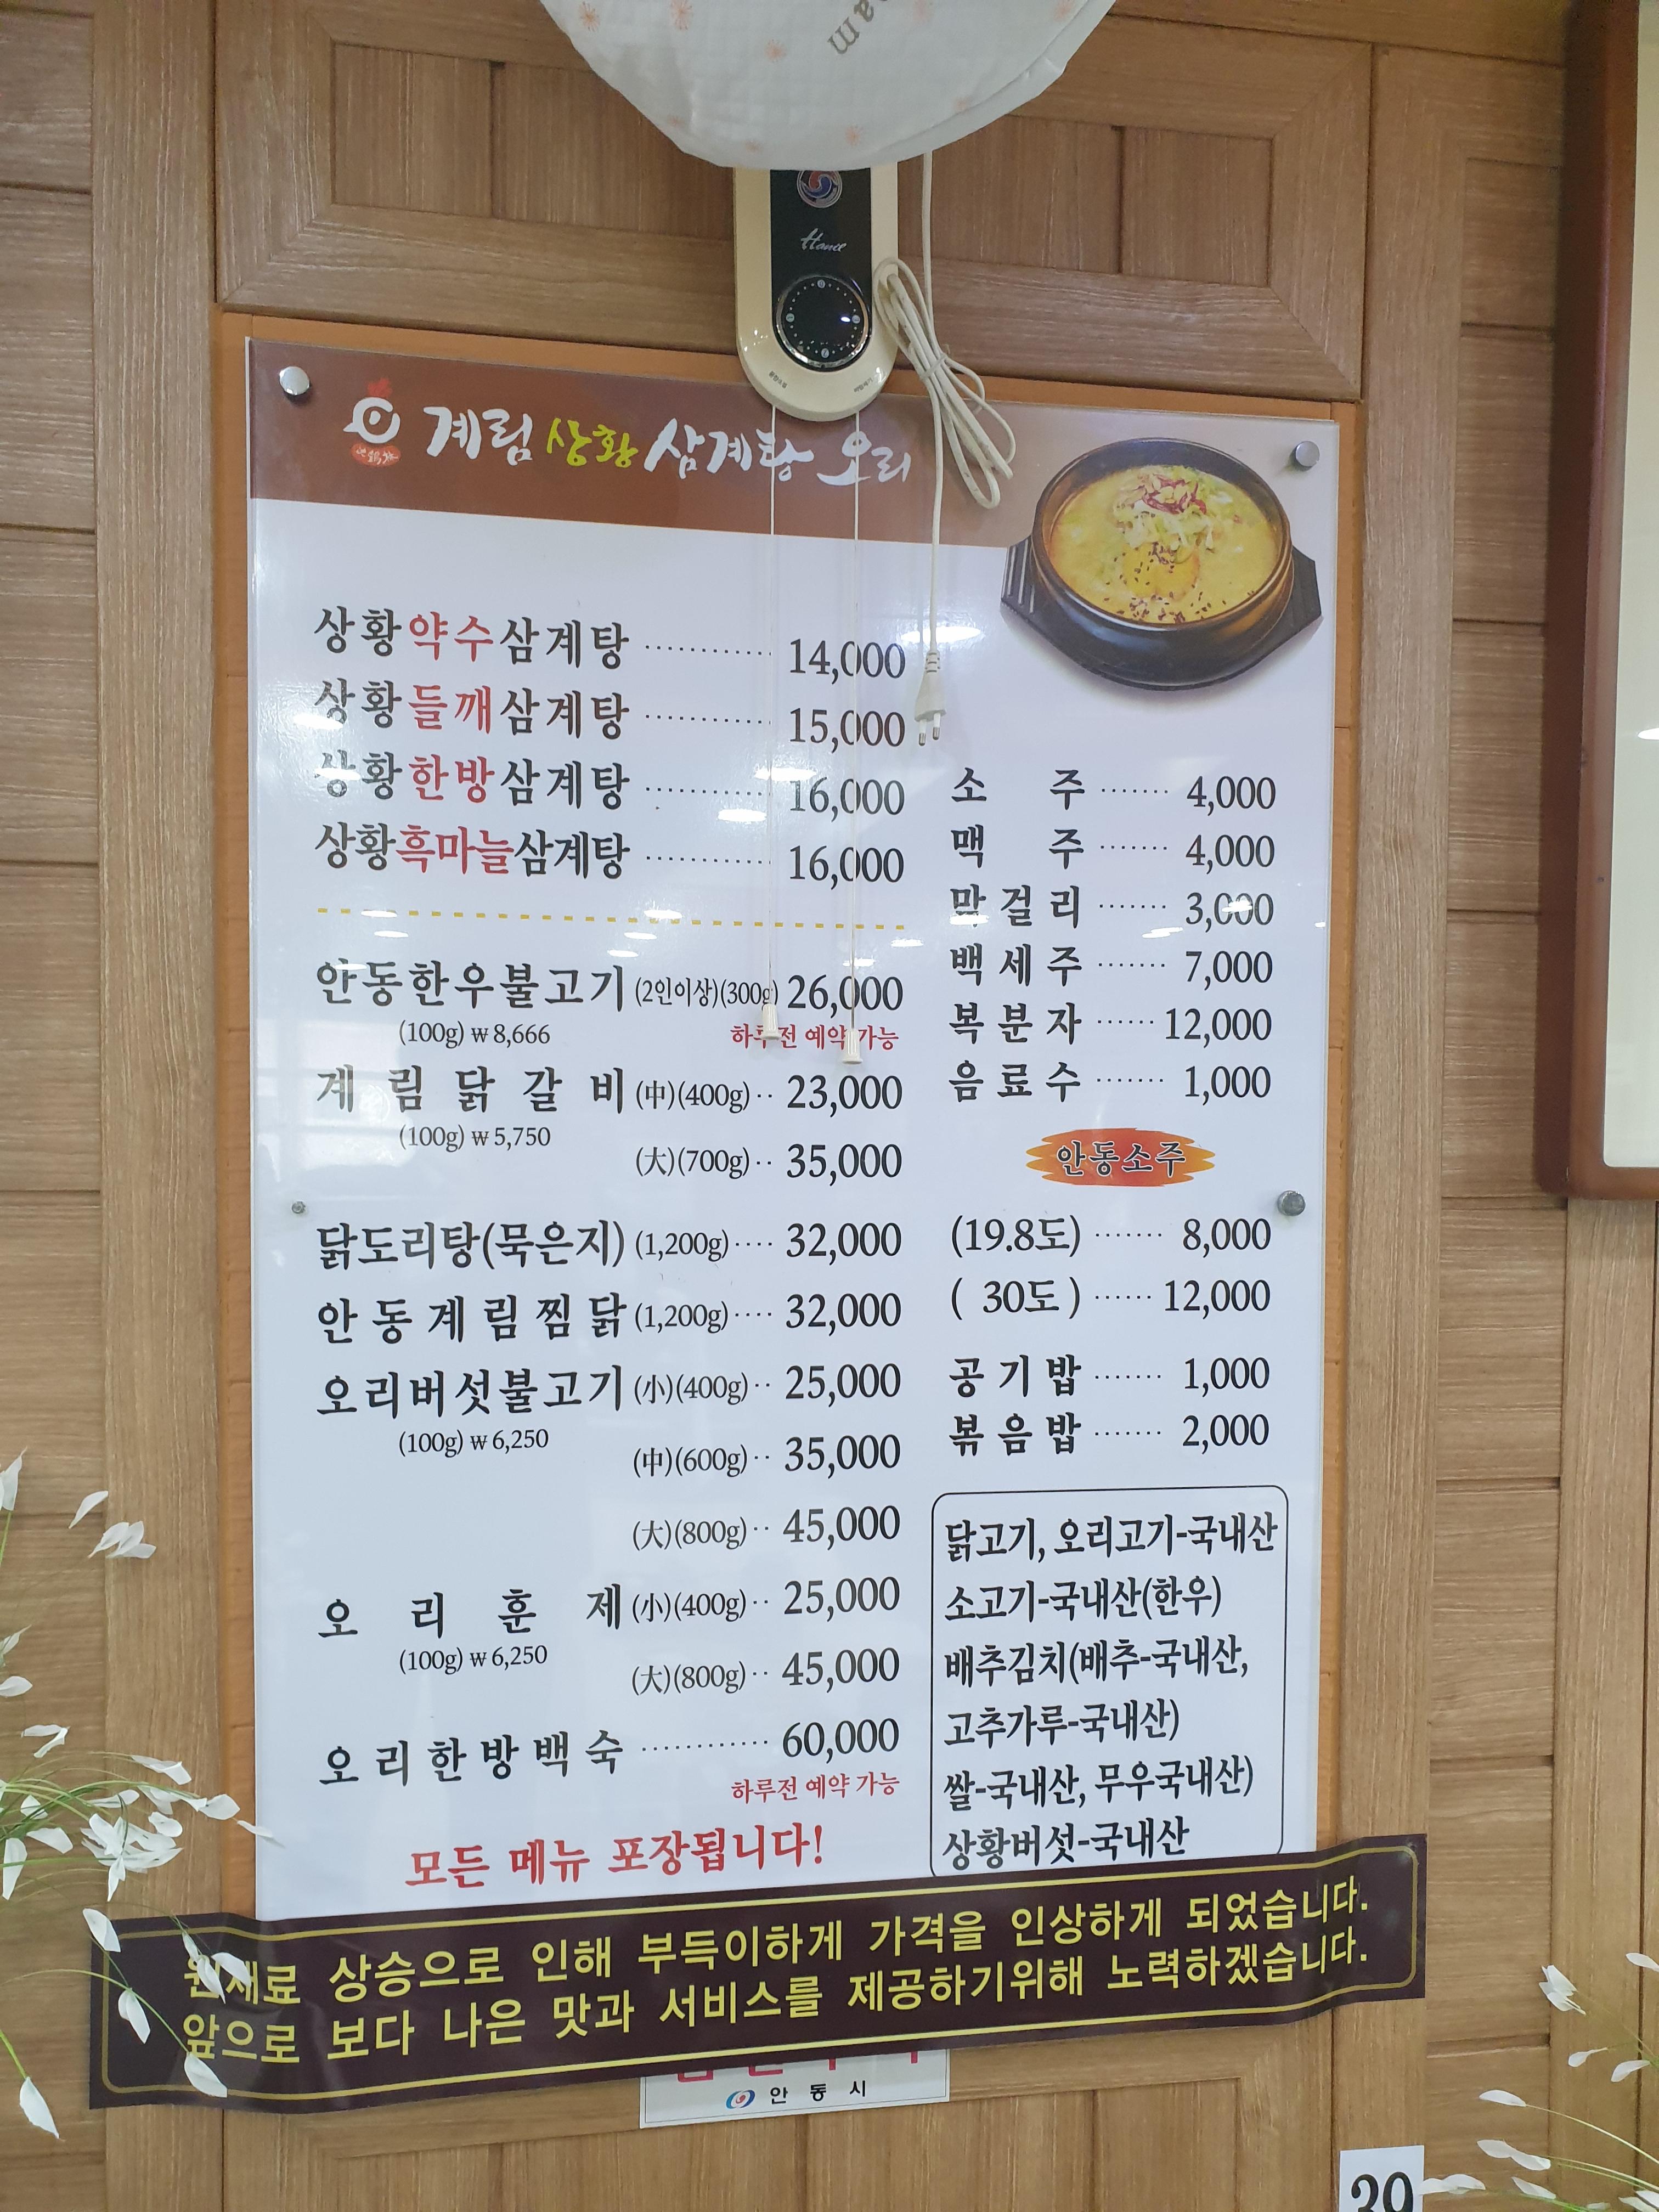 Hanil
계림 상황 삼계탕 오리
상황약수삼계탕 ············ 14,000
상황들깨삼계탕 ············ 15,000
상황한방삼계탕 ············ 16,000
상황흑마늘삼계탕 ············ 16,000
안동한우불고기 (2인이상)(300g) 26,000
(100g) ₩8,666 하루전 예약 가능
계림닭갈비 (中)(400g) ·· 23,000
(100g) ₩5,750
(大)(700g) ·· 35,000
닭도리탕(묵은지) (1,200g) ···· 32,000
안동계림찜닭 (1,200g) ···· 32,000
오리버섯불고기 (小)(400g) ·· 25,000
(100g) ₩6,250
(中)(600g) ·· 35,000
(大)(800g) ·· 45,000
오리훈제 (小)(400g) ·· 25,000
(100g) ₩6,250
(大)(800g) ·· 45,000
오리한방백숙 ············ 60,000
하루전 예약 가능
모든 메뉴 포장됩니다!
소주 ······· 4,000
맥주 ······· 4,000
막걸리 ······· 3,000
백세주 ······· 7,000
복분자 ······ 12,000
음료수 ······· 1,000
안동소주
(19.8도) ······· 8,000
( 30도 ) ······ 12,000
공기밥 ······· 1,000
볶음밥 ······· 2,000
닭고기, 오리고기-국내산
소고기-국내산(한우)
배추김치(배추-국내산,
고추가루-국내산)
쌀-국내산, 무우국내산)
상황버섯-국내산
원재료 상승으로 인해 부득이하게 가격을 인상하게 되었습니다.
앞으로 보다 나은 맛과 서비스를 제공하기위해 노력하겠습니다.
안동시
39